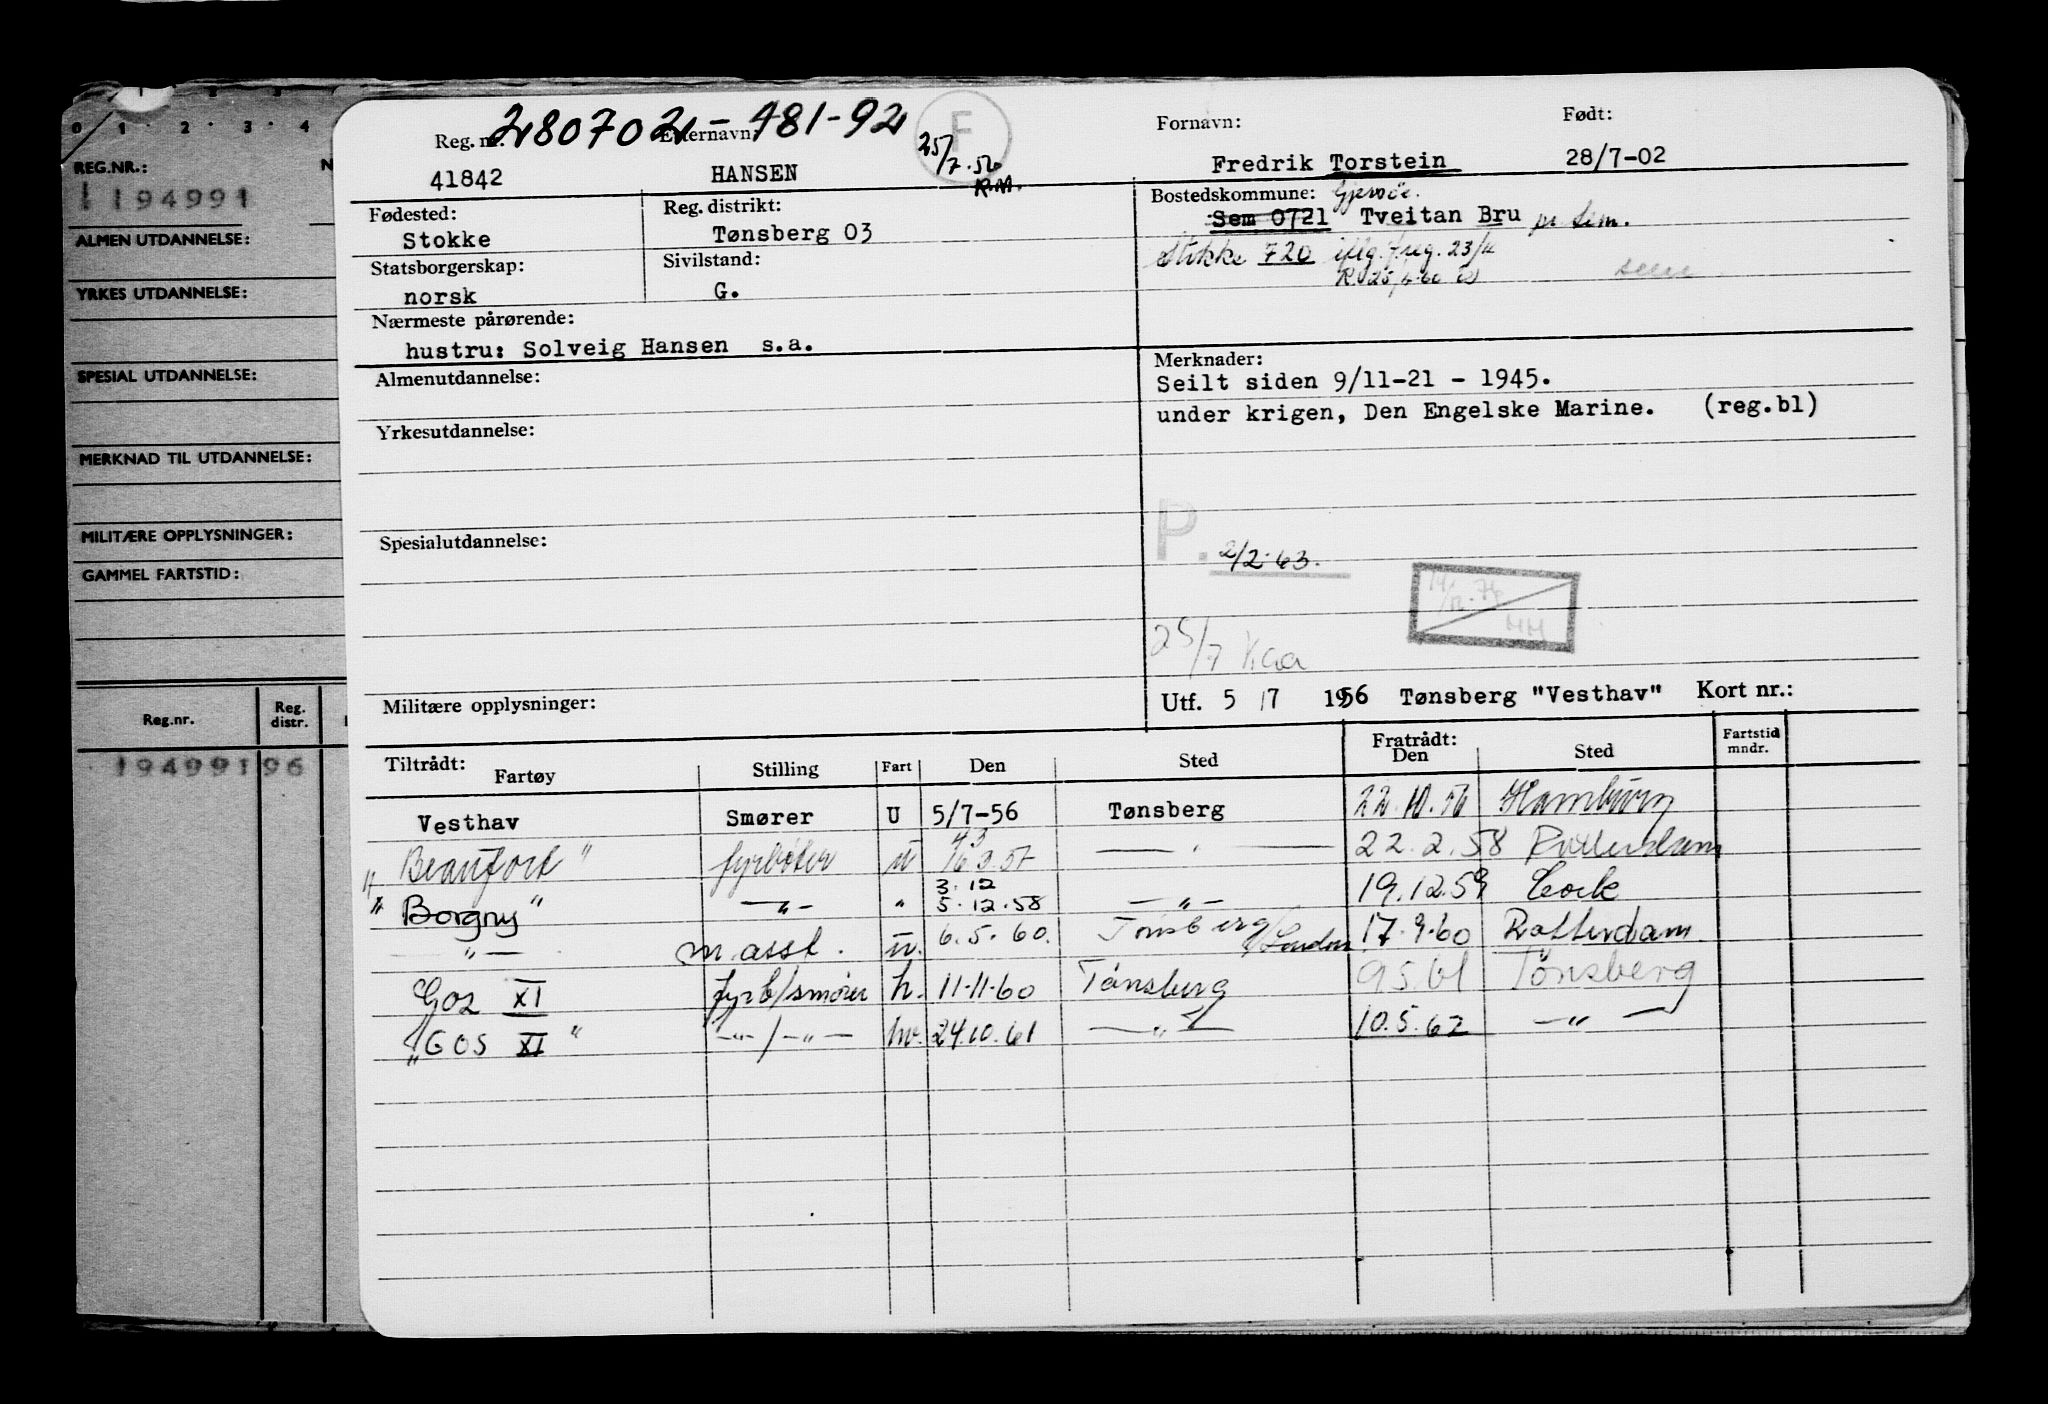 REG.NR.:
194991
ALMEN UTDANNELSE:
YRKES UTDANNELSE:
SPESIAL UTDANNELSE:
MERKNAD TIL UTDANNELSE:
MILITÆRE OPPLYSNINGER:
GAMMEL FARTSTID:
Reg.nr. Reg. distr.
19499196
Reg. nr. Etternavn: Fornavn: Født:
280702-481-92 F
25/7.56 R.M.
41842 HANSEN Fredrik Torstein 28/7-02
Fødested: Reg. distrikt: Bostedskommune:
Stokke Tønsberg 03 Sem 0721 Tveitan Bru pr Sem.
Stokke 720 iflg. freg. 23/4
Statsborgerskap: Sivilstand:
norsk G.
Nærmeste pårørende:
hustru: Solveig Hansen s.a.
Almenutdannelse:
Merknader:
Seilt siden 9/11-21 - 1945.
under krigen, Den Engelske Marine. (reg.bl)
Yrkesutdannelse:
Spesialutdannelse:
P. 2/2-63.
HH
25/7 Kaa
Militære opplysninger:
Utf. 5/7 1956 Tønsberg "Vesthav" Kort nr.:
Tiltrådt: Fartøy Stilling Fart Den Sted Fratrådt: Den Sted Fartstid mndr.
Vesthav Smører U 5/7-56 Tønsberg 22.10.56 Hamburg
"Beaufort" fyrbøter u 16.3.57 — " — 22.2.58 Rotterdam
"Borgny" —"— " 3.12 5.12.58 —"— 19.12.59 Cork
—"— m. asst. u. 6.5.60. Tønsberg/London 17.9.60 Rotterdam
Gos XI fyrb/smører h. 11-11-60 Tønsberg 9.5.61 Tønsberg
"GOS XI" —"—/—"— hv. 24.10.61 —"— 10.5.62 —"—